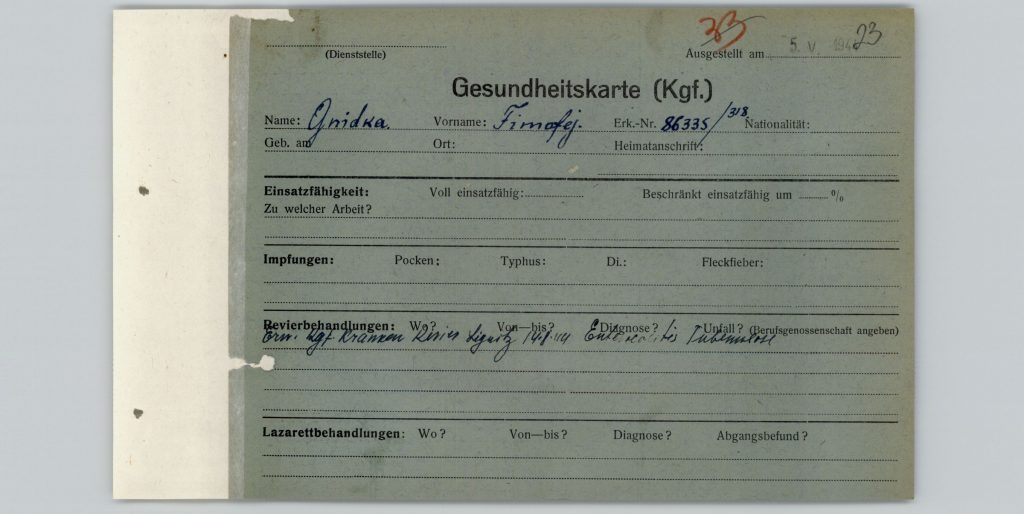 33
(Dienststelle)
Ausgestellt am 5. V. 194 23
Gesundheitskarte (Kgf.)
Name: Gnidka. Vorname: Timofej. Erk.-Nr. 86335/318 Nationalität:
Geb. am Ort: Heimatanschrift:
Einsatzfähigkeit: Voll einsatzfähig: Beschränkt einsatzfähig um %
Zu welcher Arbeit?
Impfungen: Pocken: Typhus: Di.: Fleckfieber:
Revierbehandlungen: Wo? Von—bis? Diagnose? Unfall? (Berufsgenossenschaft angeben)
Kgf Kranken Revier Liegnitz Tuberculose
Lazarettbehandlungen: Wo? Von—bis? Diagnose? Abgangsbefund?